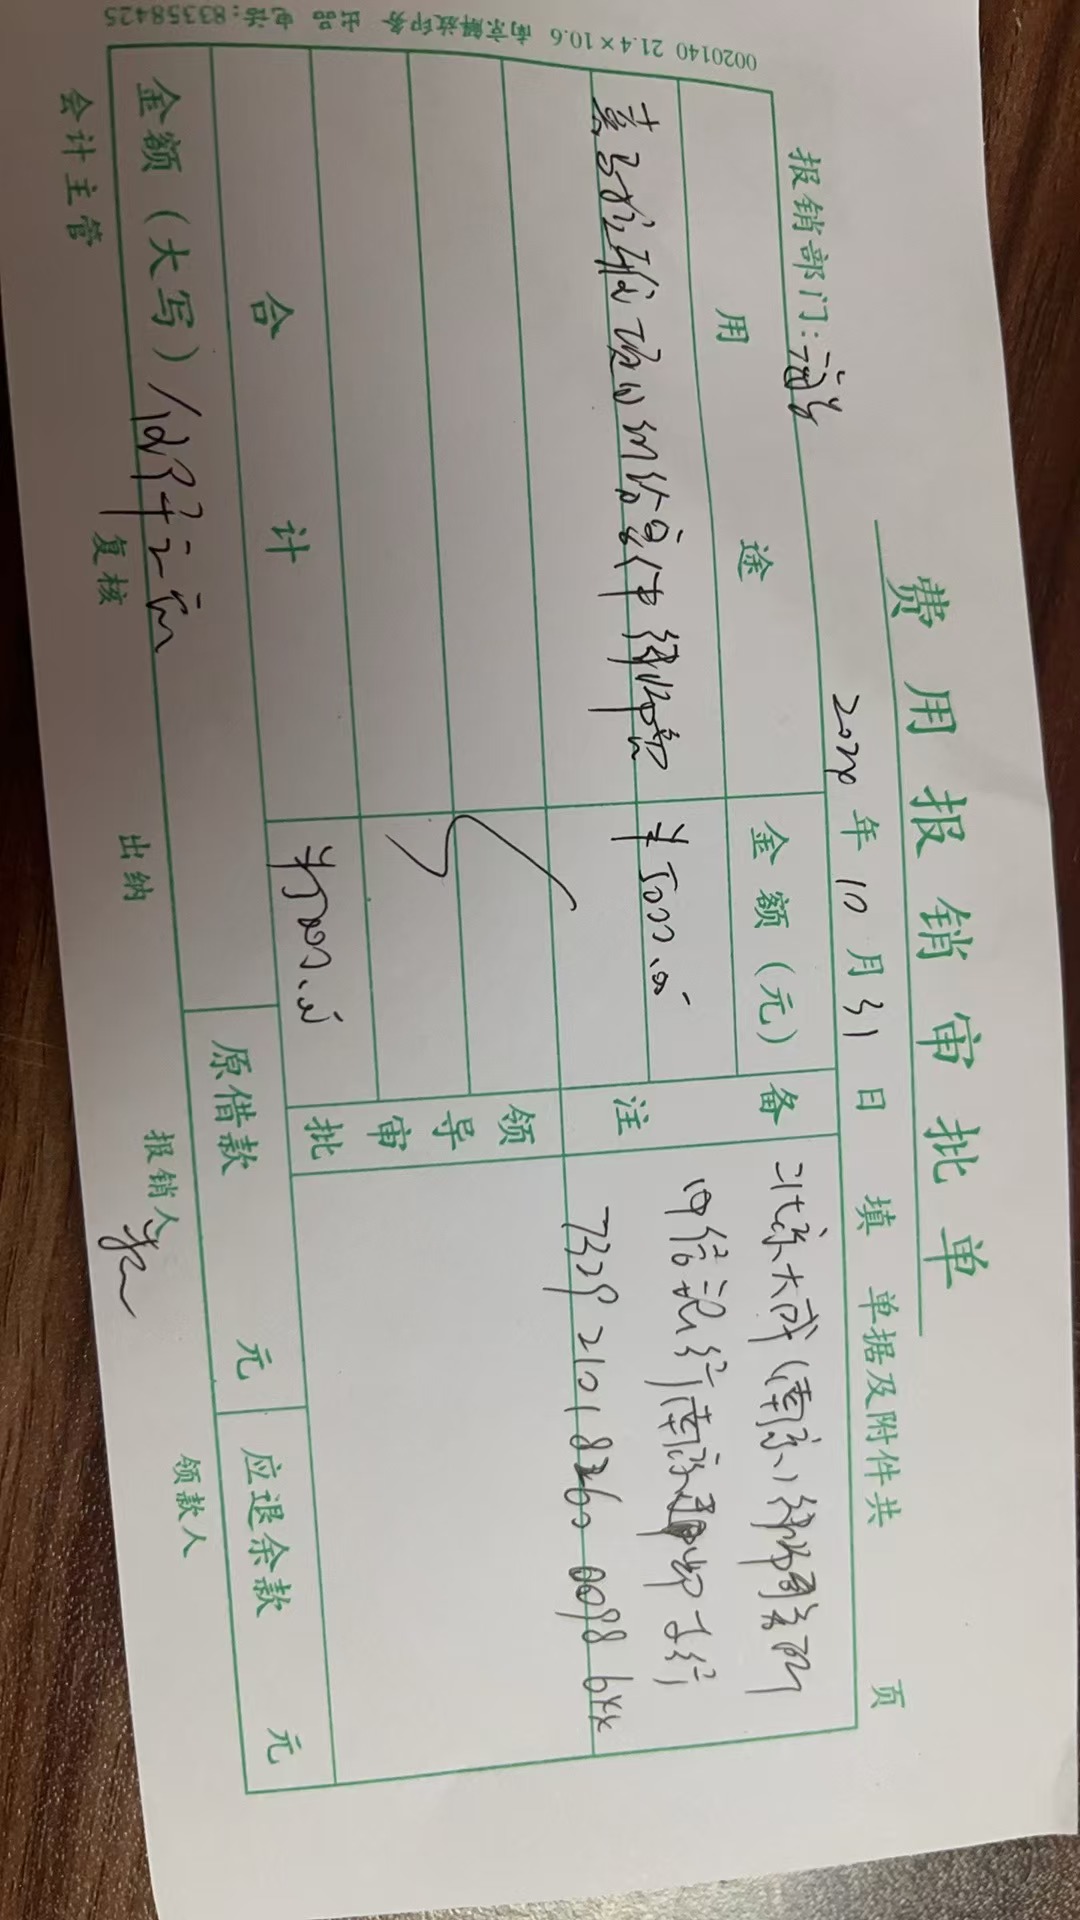 费用报销审批单
报销部门: 2024 年 10 月 31 日 填 单据及附件共 页
用途 金额(元) 备注
律师费 ¥5000.00
北京大成(南京)律师事务所
中信银行南京 支行
7329 2101 8260 0098 644
领导审批
合计 ¥5000.00
金额(大写) 伍仟元 原借款 元 应退余款 元
会计主管 复核 出纳 报销人 领款人
0020140 21.4×10.6 南京解放印务 出品 电话:83358425